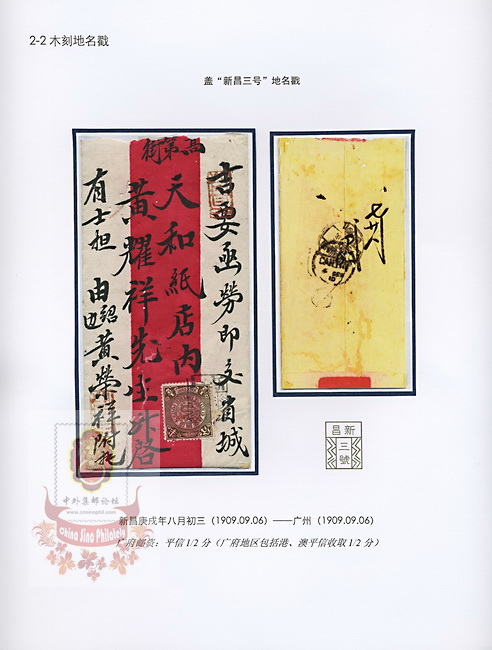 2-2 木刻地名戳
盖“新昌三号”地名戳
吉要函勞即交省城
高第街
天和紙店内
黄耀祥先生升啓
有士担
由
黄榮祥付托
CANTON
新昌
三號
中外集邮论坛
www.cnsinophil.com
China Sino Philately
新昌庚戌年八月初三（1909.09.06）——广州（1909.09.06）
广府邮资：平信1/2分（广府地区包括港、澳平信收取1/2分）